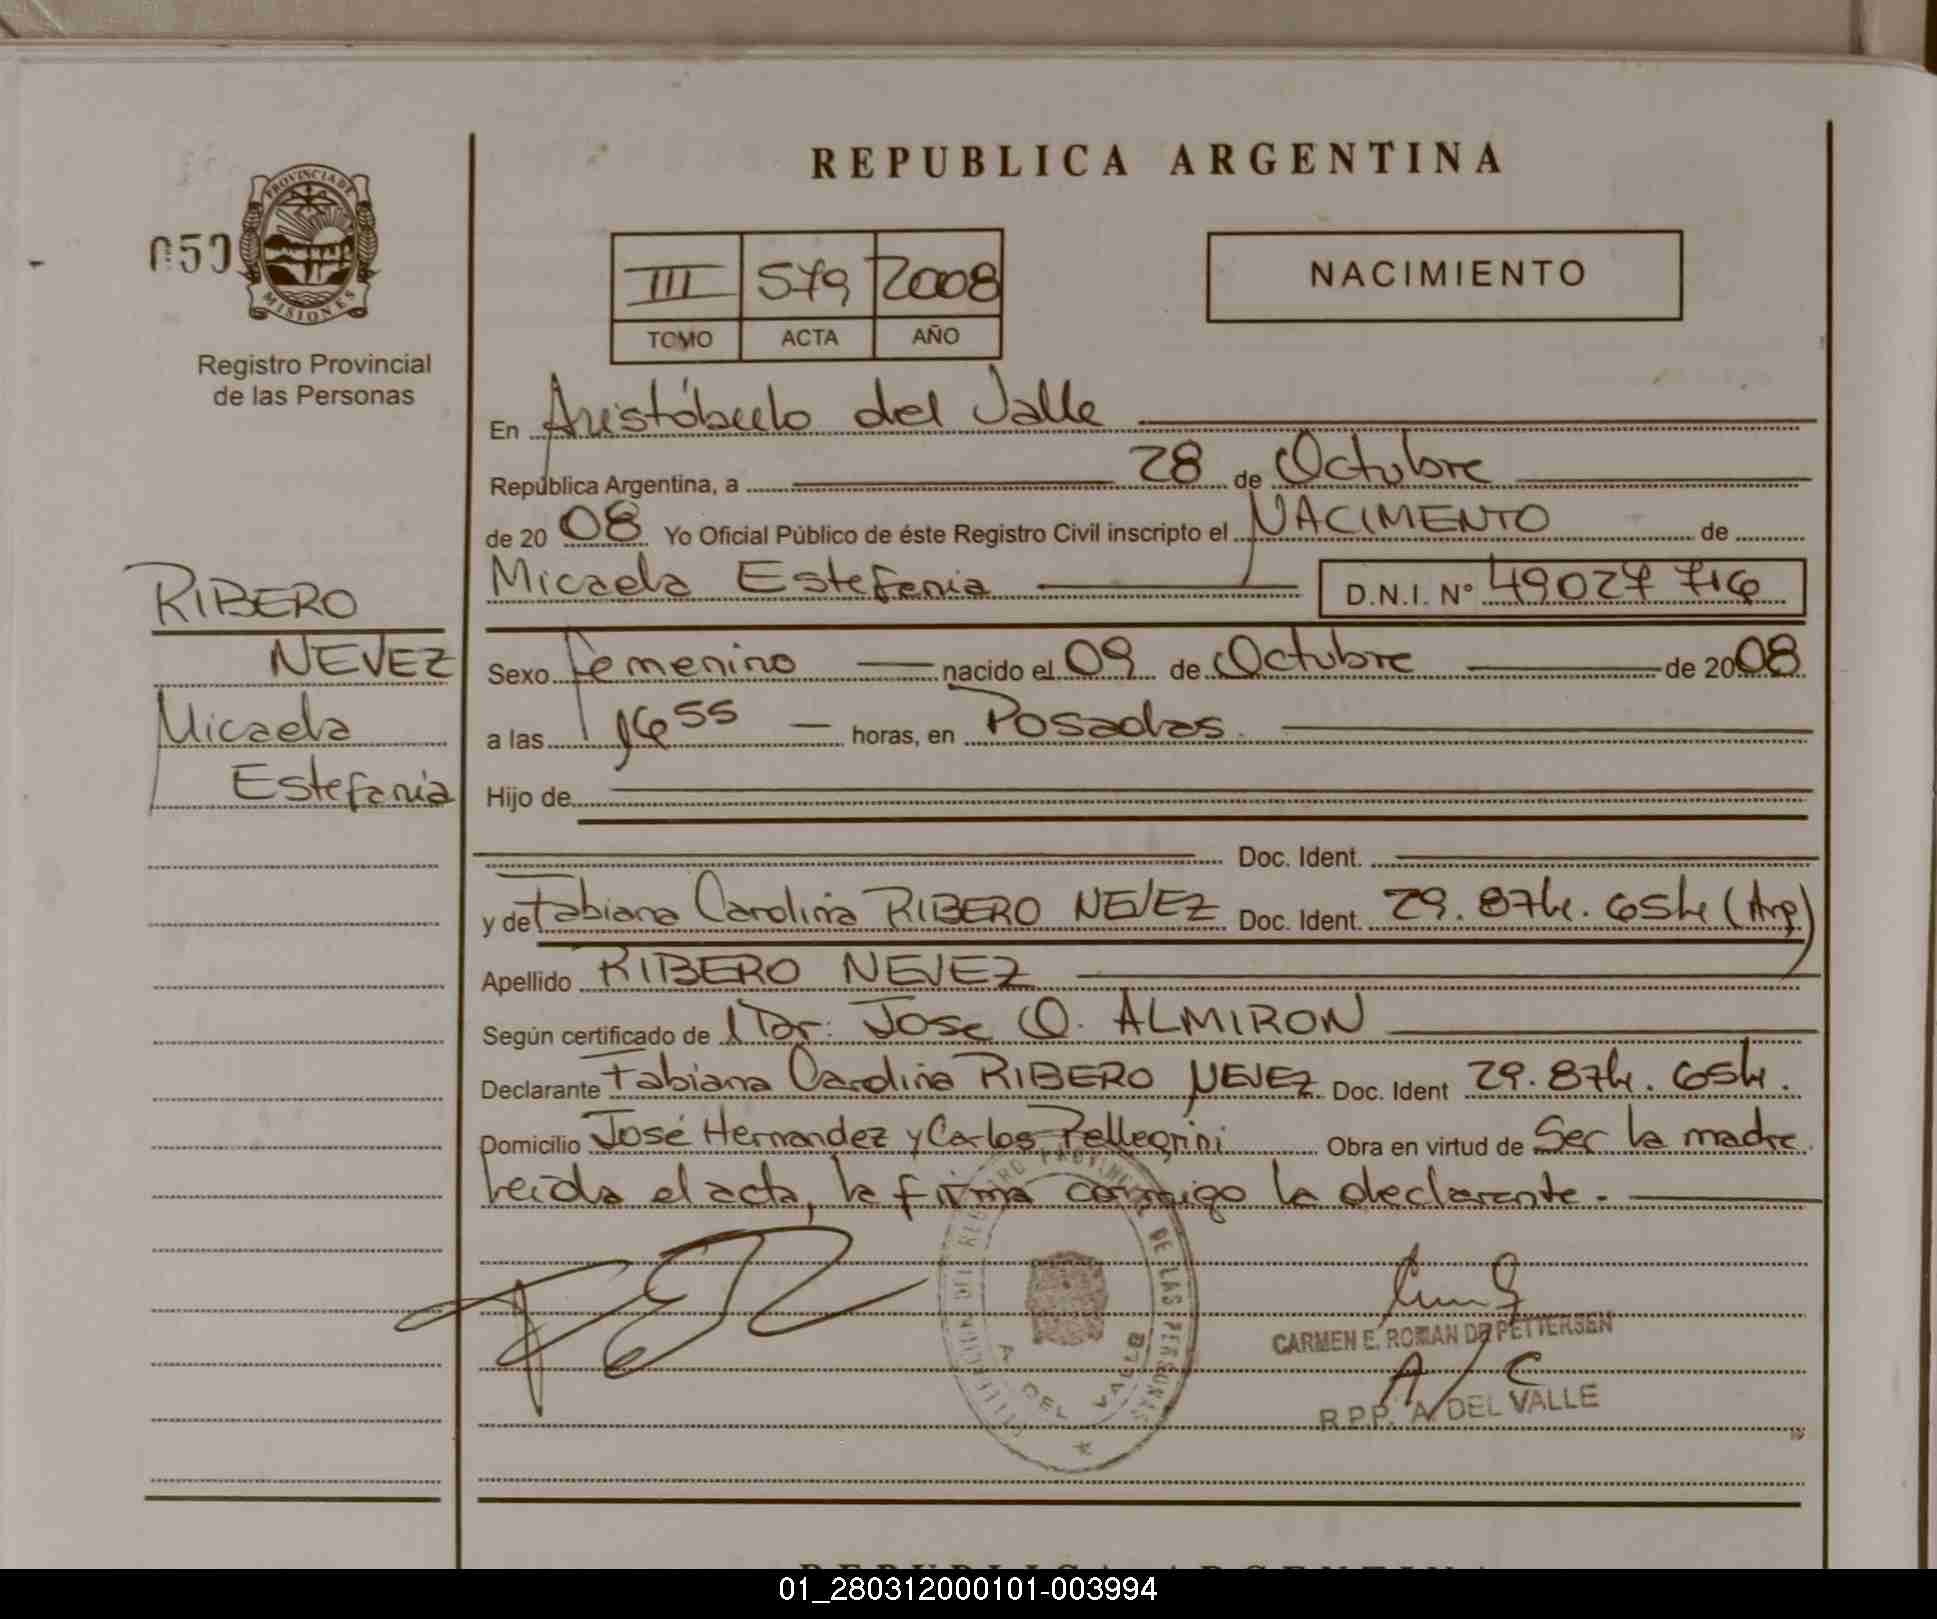 REPUBLICA ARGENTINA
PROVINCIA DE
MISIONES
059
Registro Provincial
de las Personas
III 579 2008
TOMO ACTA AÑO
NACIMIENTO
En Aristóbulo del Valle
República Argentina, a 28 de Octubre
de 20 08 Yo Oficial Público de éste Registro Civil inscripto el NACIMENTO de
Micaela Estefania D.N.I. N° 49027716
RIBERO
NEVEZ
Micaela
Estefania
Sexo femenino nacido el 09 de Octubre de 20 08
a las 16 55 horas, en Posadas.
Hijo de
Doc. Ident.
y de Fabiana Carolina RIBERO NEVEZ Doc. Ident. 29.874.654 (Arg)
Apellido RIBERO NEVEZ
Según certificado de Dr. Jose O. ALMIRON
Declarante Fabiana Carolina RIBERO NEVEZ Doc. Ident 29.874.654.
Domicilio José Hernandez y Carlos Pellegrini Obra en virtud de Ser la madre.
Leida el acta, la firma conmigo la declarante.-
DEL REGISTRO PROVINCIAL DE LAS PERSONAS
A DEL VALLE
CARMEN E. ROMAN DE PETTERSEN
A/C
R.P.P. A. DEL VALLE
01_280312000101-003994